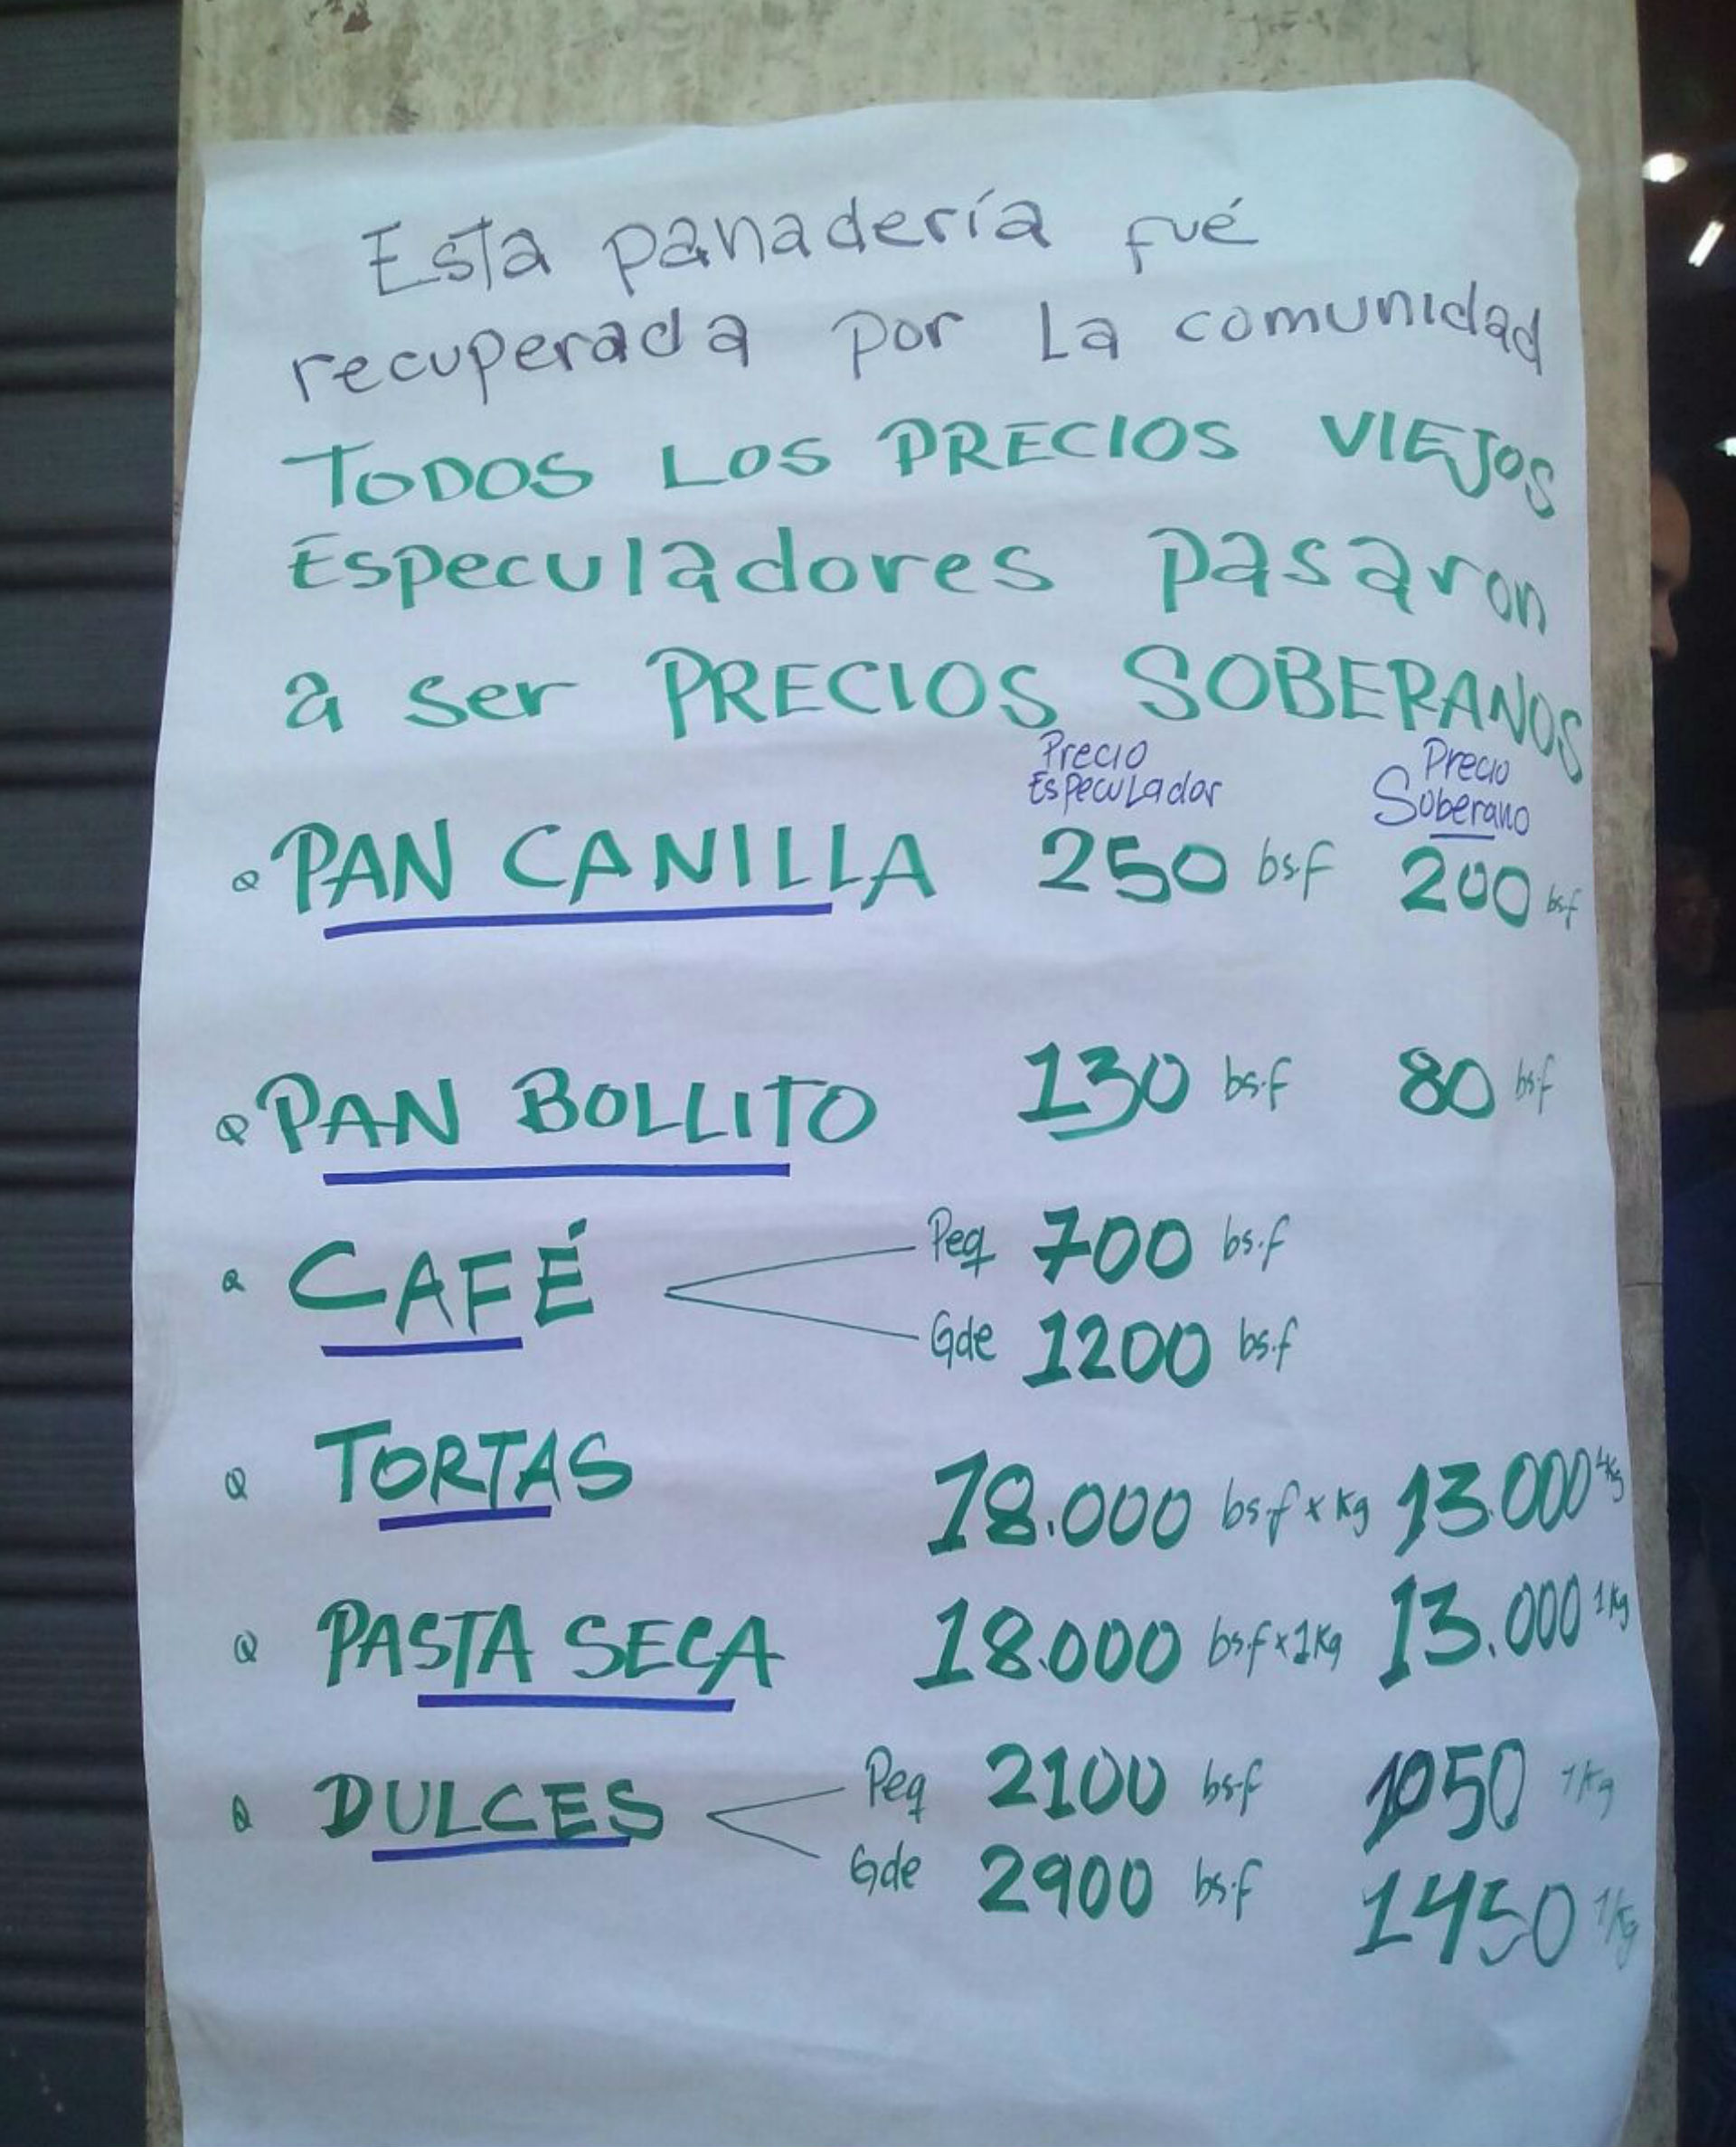 Esta panadería fué
recuperada por La comunidad
TODOS LOS PRECIOS VIEJOS
Especuladores pasaron
a ser PRECIOS SOBERANOS
Precio Precio
Especulador Soberano
PAN CANILLA 250 bs.f 200 bs.f
PAN BOLLITO 130 bs.f 80 bs.f
CAFÉ Peq 700 bs.f
Gde 1200 bs.f
TORTAS 18.000 bs.f x Kg 13.000
PASTA SECA 18.000 bs.f x 1Kg 13.000 1Kg
DULCES Peq 2100 bs.f 1050 1Kg
Gde 2900 bs.f 1450 1Kg